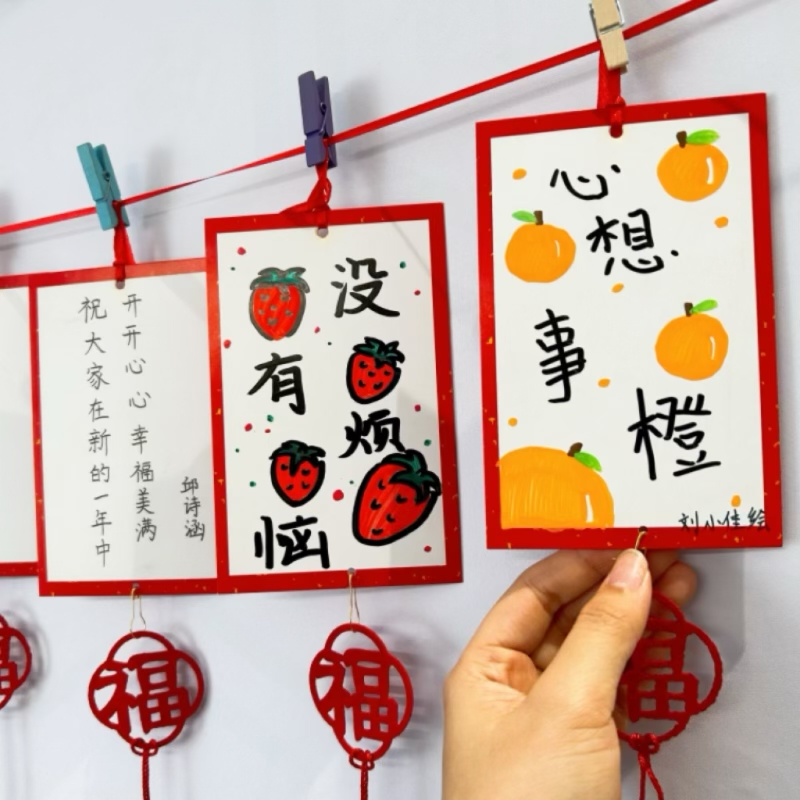 祝大家在新的一年中
开开心心 幸福美满
邱诗涵
没有烦恼
心想事橙
刘小佳绘
福
福
福
福